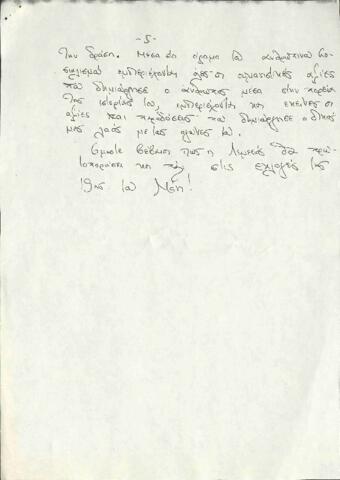 - 5 -
την δράση. Μέσα στο όραμα του ανθρώπινου σο-
σιαλισμού εμπεριέχονται όλες οι σημαντικές αξίες
που δημιούργησε ο άνθρωπος μέσα στην πορεία
της ιστορίας του, εμπεριέχονται και εκείνες οι
αξίες και παραδόσεις που δημιούργησε ο δικός
μας λαός με τους αγώνες του.
Είμαστε βέβαιοι πως η Λεμεσός θα πρω-
τοπορήσει και πάλι στις εκλογές της
19ης του Μάη!